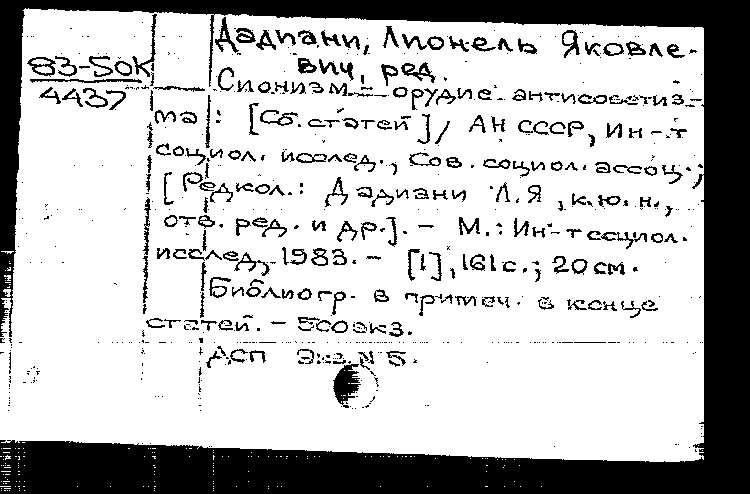 Дадиани, Лионель Яковле-
вич, ред.
83-50К
4437
Сионизм - орудие антисоветиз-
ма: [Сб. статей] / АН СССР, Ин-т
социол. исслед., Сов. социол. ассоц.;
[Редкол.: Дадиани Л.Я, к.ю.н.,
отв. ред. и др.]. - М.: Ин-т социол.
исслед., 1983. - [1], 161 с.; 20 см.
Библиогр. в примеч. в конце
статей. - 500 экз.
ДСП Экз. N 5.